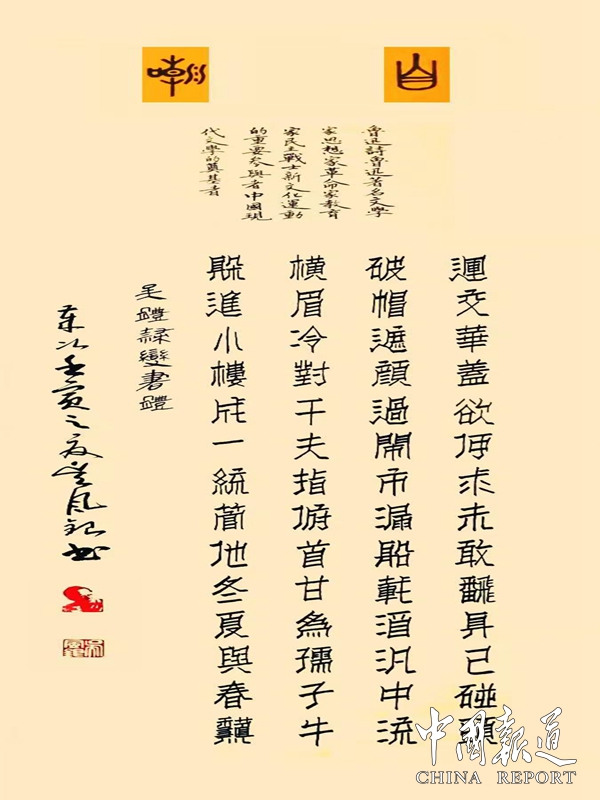 自嘲
魯迅詩魯迅著名文學
家思想家革命家教育
家民主戰士新文化運動
的重要參與者中國現
代文學的奠基者
運交華蓋欲何求未敢飜身已碰頭
破帽遮顏過鬧市漏船載酒汎中流
橫眉冷對千夫指俯首甘為孺子牛
躲進小樓成一統管他冬夏與春龝
吴體隸變書體
壬寅之夏
中國報道
CHINA REPORT